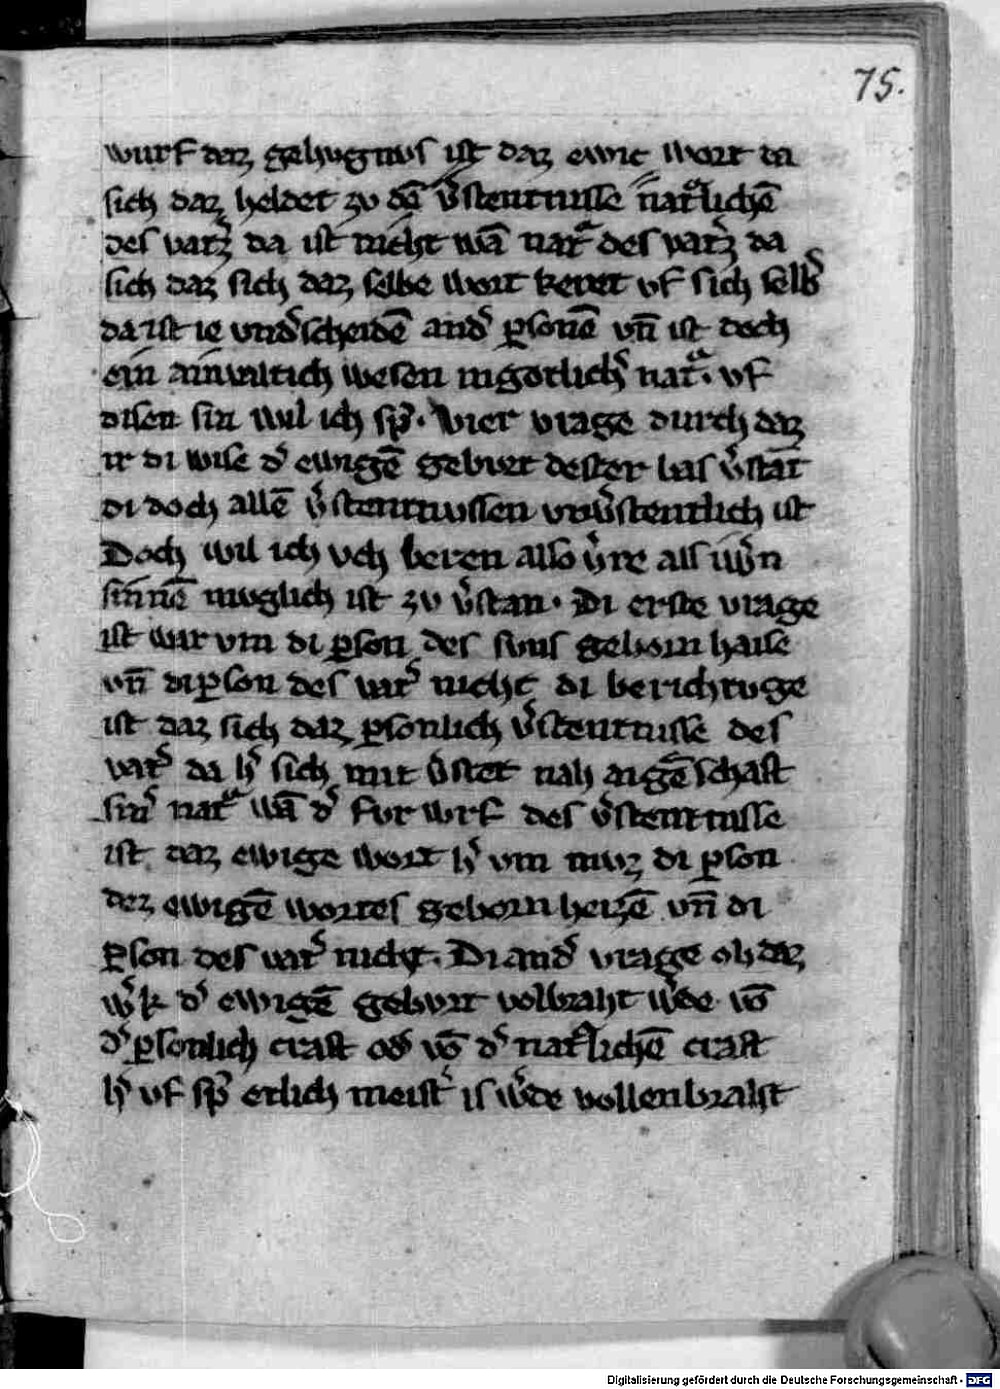 75.
wurf daz gehugnus ist daz ewic wort da
sich daz heldet zu dē v̓stentnisse natᵃlichē
des vatz̓ da ist nicht wā natᵃ des vatz̓ da
sich daz sich daz selbe wort keret vf sich selb̓
da ist ie vnd̓scheidē and̓ ꝑsonē vn̄ ist doch
ein ainualtich wesen ingotlich̓ natᵃ. vf
disen sin wil ich sp̓. vier vrage durch daz
ir di wise d̓ ewigē geburt dester bas v̓stāt
di doch allē v̓stentnussen vnv̓stentlich ist
Doch wil ich vch beren also v̓re als uw̓n
sinnē muglich ist zu v̓stan. Di erste vrage
ist war vm di ꝑson des suns geborn haise
vn̄ di ꝑson des vat̓ nicht di berichtuge
ist daz sich daz ꝑsonlich v̓stentnisse des
vat̓ da h̓ sich mit v̓stet nah aigēschaft
sin̓ natᵃ wā d̓ fur wrf des v̓stentnisse
ist daz ewige wort h̓ vm muz di ꝑson
dez ewigē wortes geborn heizē vn̄ di
ꝑson des vat̓ nicht. Di and̓ vrage ob daz
w̓k d̓ ewigē geburt volbraht w̓de vō
d̓ ꝑsonlich craft od̓ vō d̓ natᵃlichē craft
h̓ vf sp̓ etlich meist̓ is w̓de vollenbraht
Digitalisierung gefördert durch die Deutsche Forschungsgemeinschaft - DFG